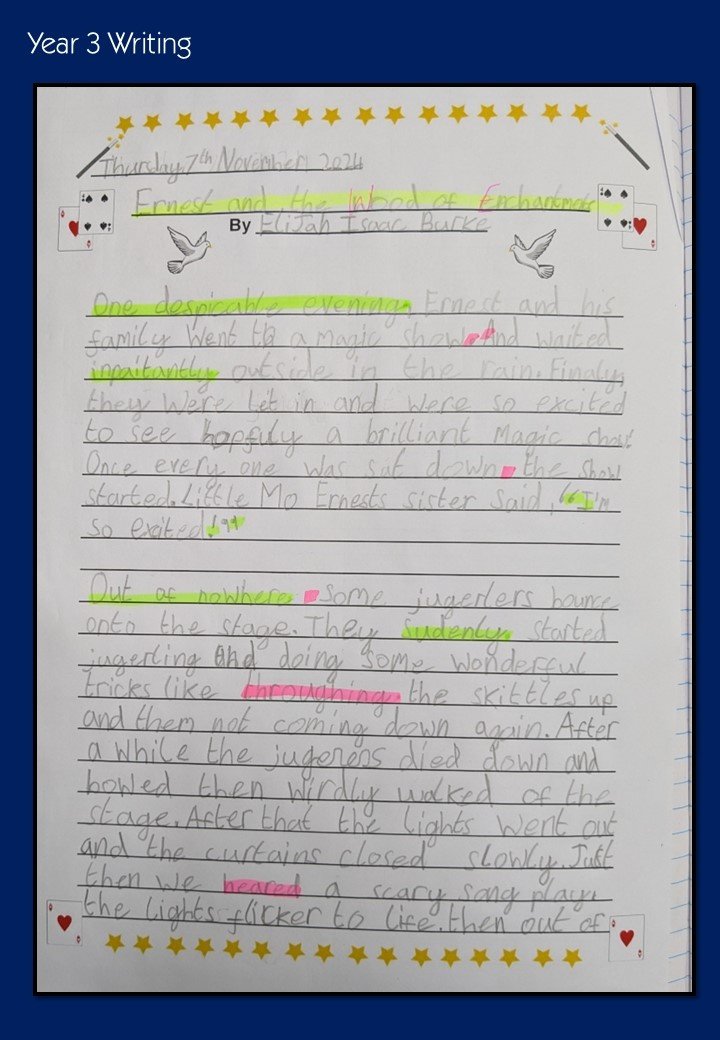 Year 3 Writing
Thursday, 7th November 2024
Ernest and the Wood of Enchantments
By Elijah Isaac Burke
One despicable evening, Ernest and his
family went to a magic show. And waited
inpaitantly outside in the rain. Finaly,
they were let in and were so excited
to see hopfuly a brilliant magic show!
Once every one was sat down, the show
started. Little Mo Ernests sister said, "I'm
so exited!"
Out of nowhere, some jugerlers bounce
onto the stage. They sudenly started
jugerling and doing some wonderful
tricks like throughing the skittles up
and them not coming down again. After
a while the died down and
bowed then wirdly walked of the
stage. After that the lights went out
and the curtains closed slowly. Just
then we heared a scary song play,
the lights flicker to life. then out of